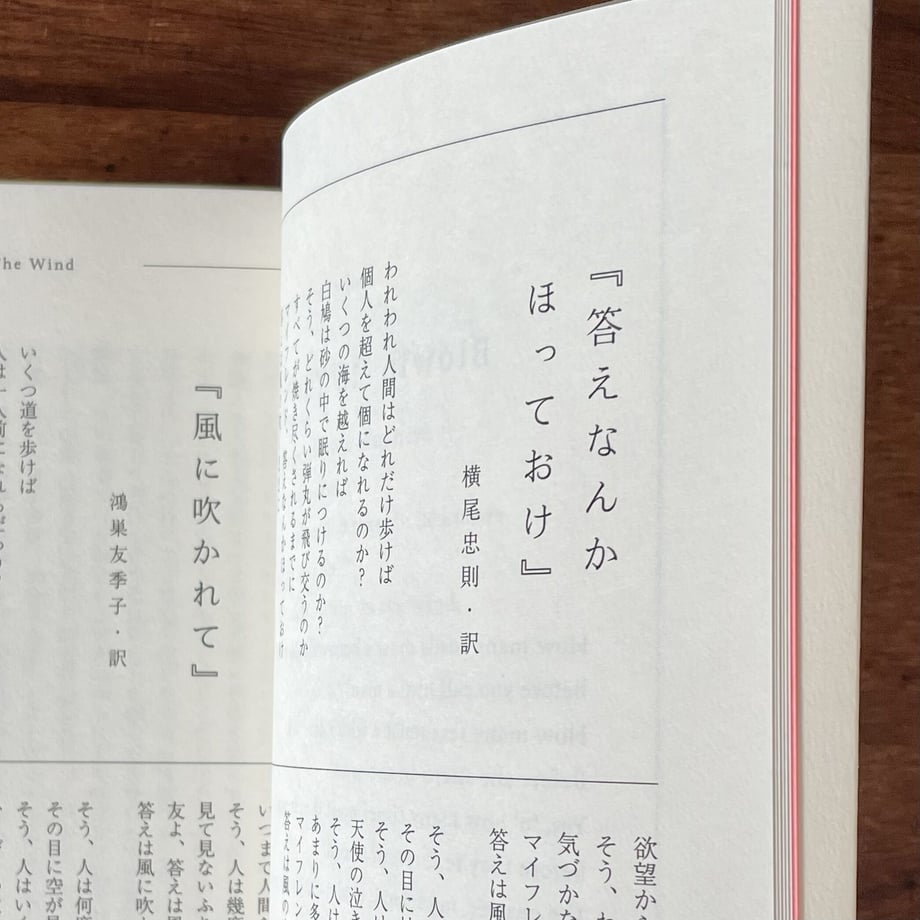 『答えなんか
ほっておけ』
横尾忠則・訳
われわれ人間はどれだけ歩けば
個人を超えて個になれるのか？
いくつの海を越えれば
白鳩は砂の中で眠りにつけるのか？
そう、どれくらい弾丸が飛び交うのか
すべてが焼き尽くされるまでに
マイフレンド、答えなんかほっておけ
欲望か
そう、
気づかな
マイフレ
答えは風
そう、人
その目に
そう、
天使の泣き
そう、人は
あまりに多
マイフレン
答えは風の
he Wind
『風に吹かれて』
鴻巣友季子・訳
いくつ道を歩けば
人は一人前になれ
いつまで人間
そう、人は幾度
見て見ないふ
友よ、答えは風
答えは風に吹か
そう、人は何度
その目に空が
そう、人はいく